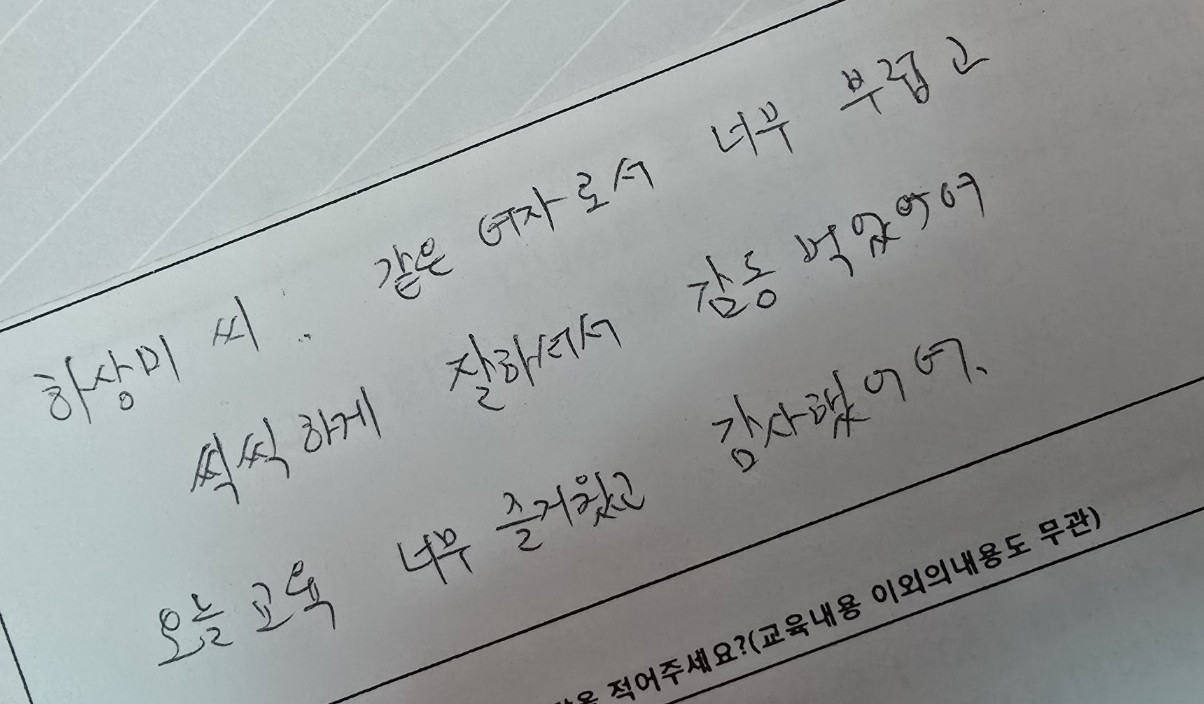 하상미 씨.. 같은 여자로서 너무 부럽고
씩씩하게 잘하셔서 감동 먹었어여
오늘 교육 너무 즐거웠고 감사했어여.
적어주세요?(교육내용 이외의내용도 무관)